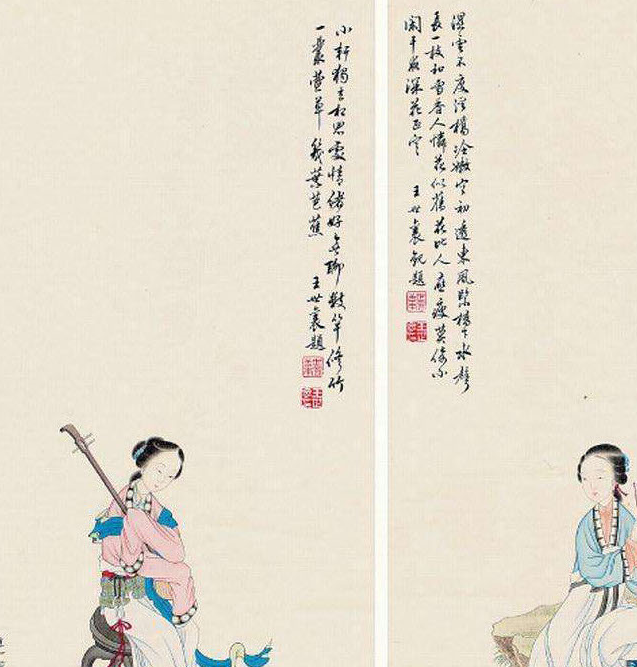 溼雲不度溪橋冷嫩寒初透東風緊橋下水聲
長一枝和雪香人憐花似舊花比人應瘦莫倚小
闌干夜深花正寒 王世襄觀題
小軒獨立相思處情緒好無聊數竿修竹
一叢萱草幾葉芭蕉 王世襄題